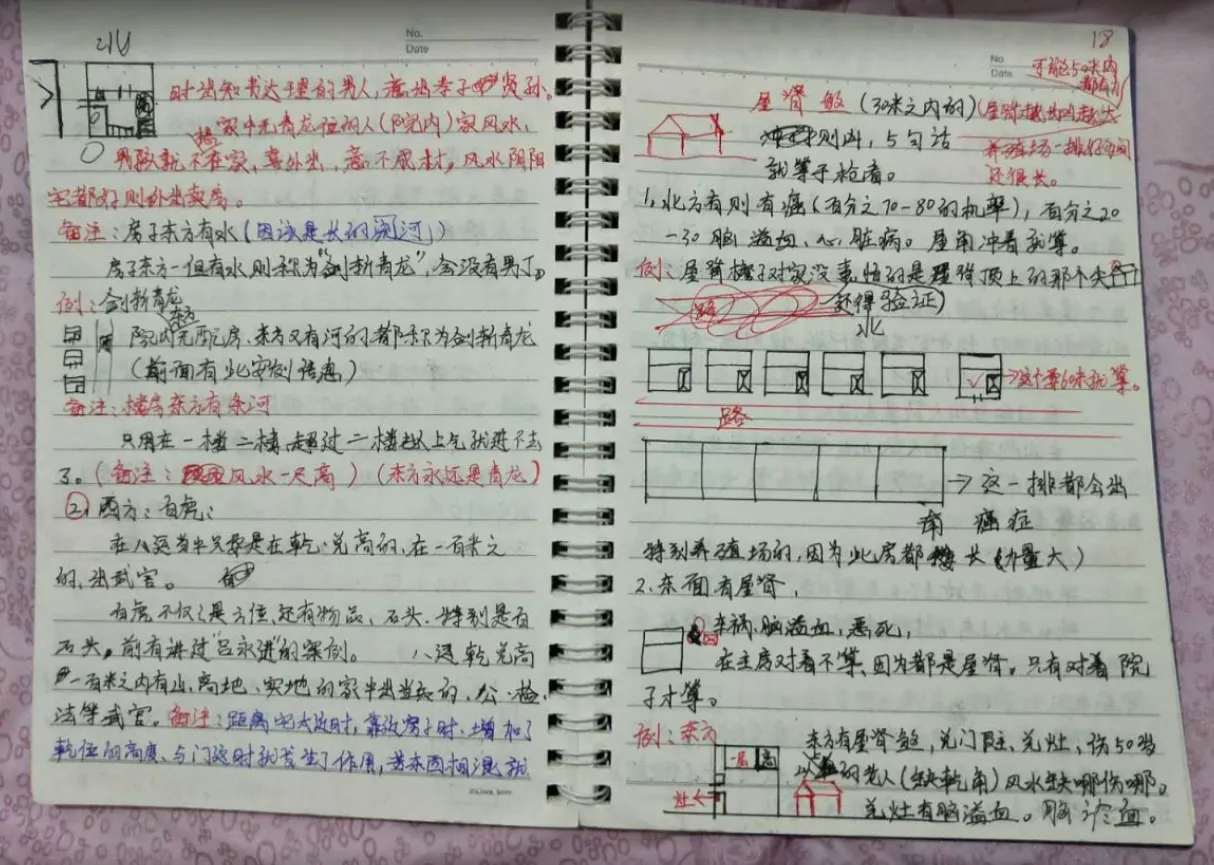 No.
Date
时出知书达理的男人，意出孝子贤孙。
家中无青龙位的人（院内）家风水，
男孩就不在家，喜外出，意不成材，风水阴阳
宅都好则外出卖房。
备注：房子东方有水（因该是长的河）
房子东方一但有水则称为"剑斩青龙"，会没有男丁。
例：剑斩青龙
院内无配房，东方又有河的，都称为剑斩青龙
（前面有此案例语惠）
备注：楼房东方有条河
只用在一楼 二楼，超过二楼以上气就进不去
了。（备注：风水一尺高）（东方永远是青龙）
②西方：白虎：
在八运当中只要是在乾、兑高的，在一百米之
的，出武官。
白虎不仅是方位，还有物品，石头，特别是有
石头，前有讲过"吕永进"的案例。 八运乾兑高
一百米之内有山、高地、实地的家中出当兵的，公、检、
法等武官。备注：距离宅太近时，靠近房子时，增加了
乾位的高度、与门边时就发生了作用，若东西相混就
18
No
Date
屋脊煞（30米之内的）（屋脊越
则凶，5句话
就等于枪毒。
养殖场一排
还很长。
1、北方有则有癌（百分之70-80的机率），百分之20
-30脑溢血、心脏病。屋角冲着就算。
例：屋脊檩子对家没事，怕的是屋脊顶上的那个尖
路
还得验证）
北
→这个要60米就算。
路
→这一排都会出
南 癌症
特别养殖场的，因为此房都长（力量大）
2、东面有屋脊，
车祸，脑溢血，恶死，
在主房对着不算，因为都是屋脊。只有对着院
子才算。
例：东方
高
灶
东方有屋脊煞，兑门、兑灶、伤50岁
以的老人（缺乾角）风水缺哪伤哪。
兑灶有脑溢血。脑血。